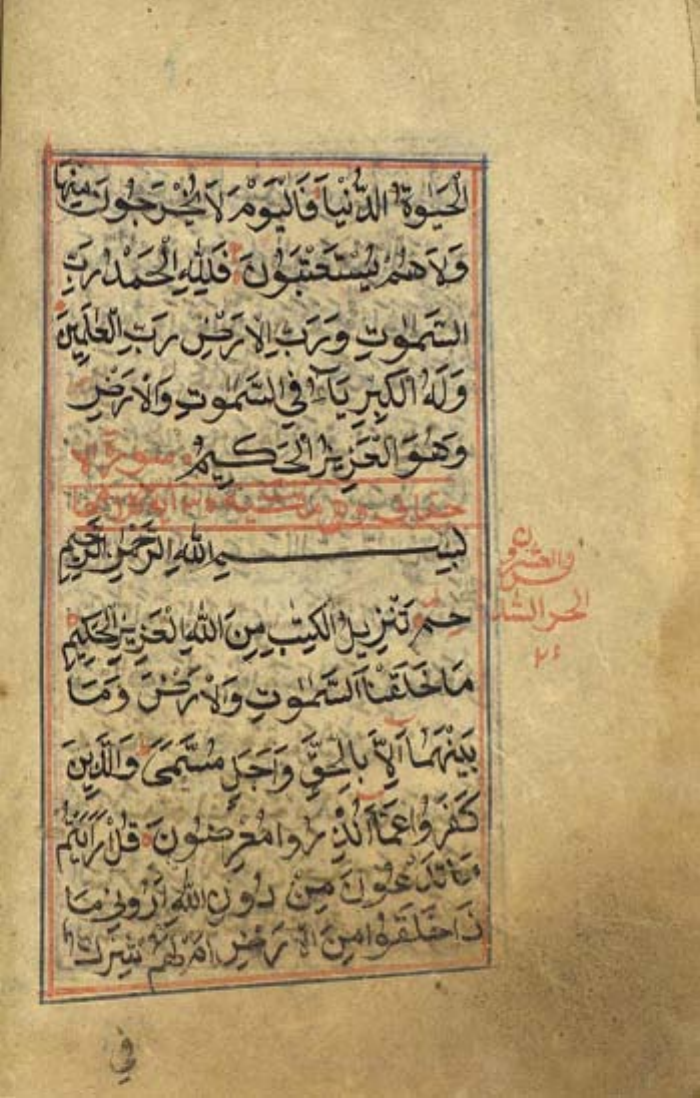 الْحَيٰوةُ الدُّنْيَا فَالْيَوْمَ لَا يُخْرَجُونَ مِنْهَا
وَلَا هُمْ يُسْتَعْتَبُونَ فَلِلّٰهِ الْحَمْدُ رَبِّ
السَّمٰوٰتِ وَرَبِّ الْاَرْضِ رَبِّ الْعٰلَمِينَ
وَلَهُ الْكِبْرِيَآءُ فِي السَّمٰوٰتِ وَالْاَرْضِ
وَهُوَ الْعَزِيزُ الْحَكِيمُ سورة
بِسْمِ اللّٰهِ الرَّحْمٰنِ الرَّحِيمِ
حٰمٓ تَنْزِيلُ الْكِتٰبِ مِنَ اللّٰهِ الْعَزِيزِ الْحَكِيمِ
مَا خَلَقْنَا السَّمٰوٰتِ وَالْاَرْضَ وَمَا
بَيْنَهُمَا اِلَّا بِالْحَقِّ وَاَجَلٍ مُسَمًّى وَالَّذِينَ
كَفَرُوا عَمَّا اُنْذِرُوا مُعْرِضُونَ قُلْ اَرَاَيْتُمْ
مَا تَدْعُونَ مِنْ دُونِ اللّٰهِ اَرُونِي مَا
ذَا خَلَقُوا مِنَ الْاَرْضِ اَمْ لَهُمْ شِرْكٌ
والعشرون
الجزء السادس
٢٦
في